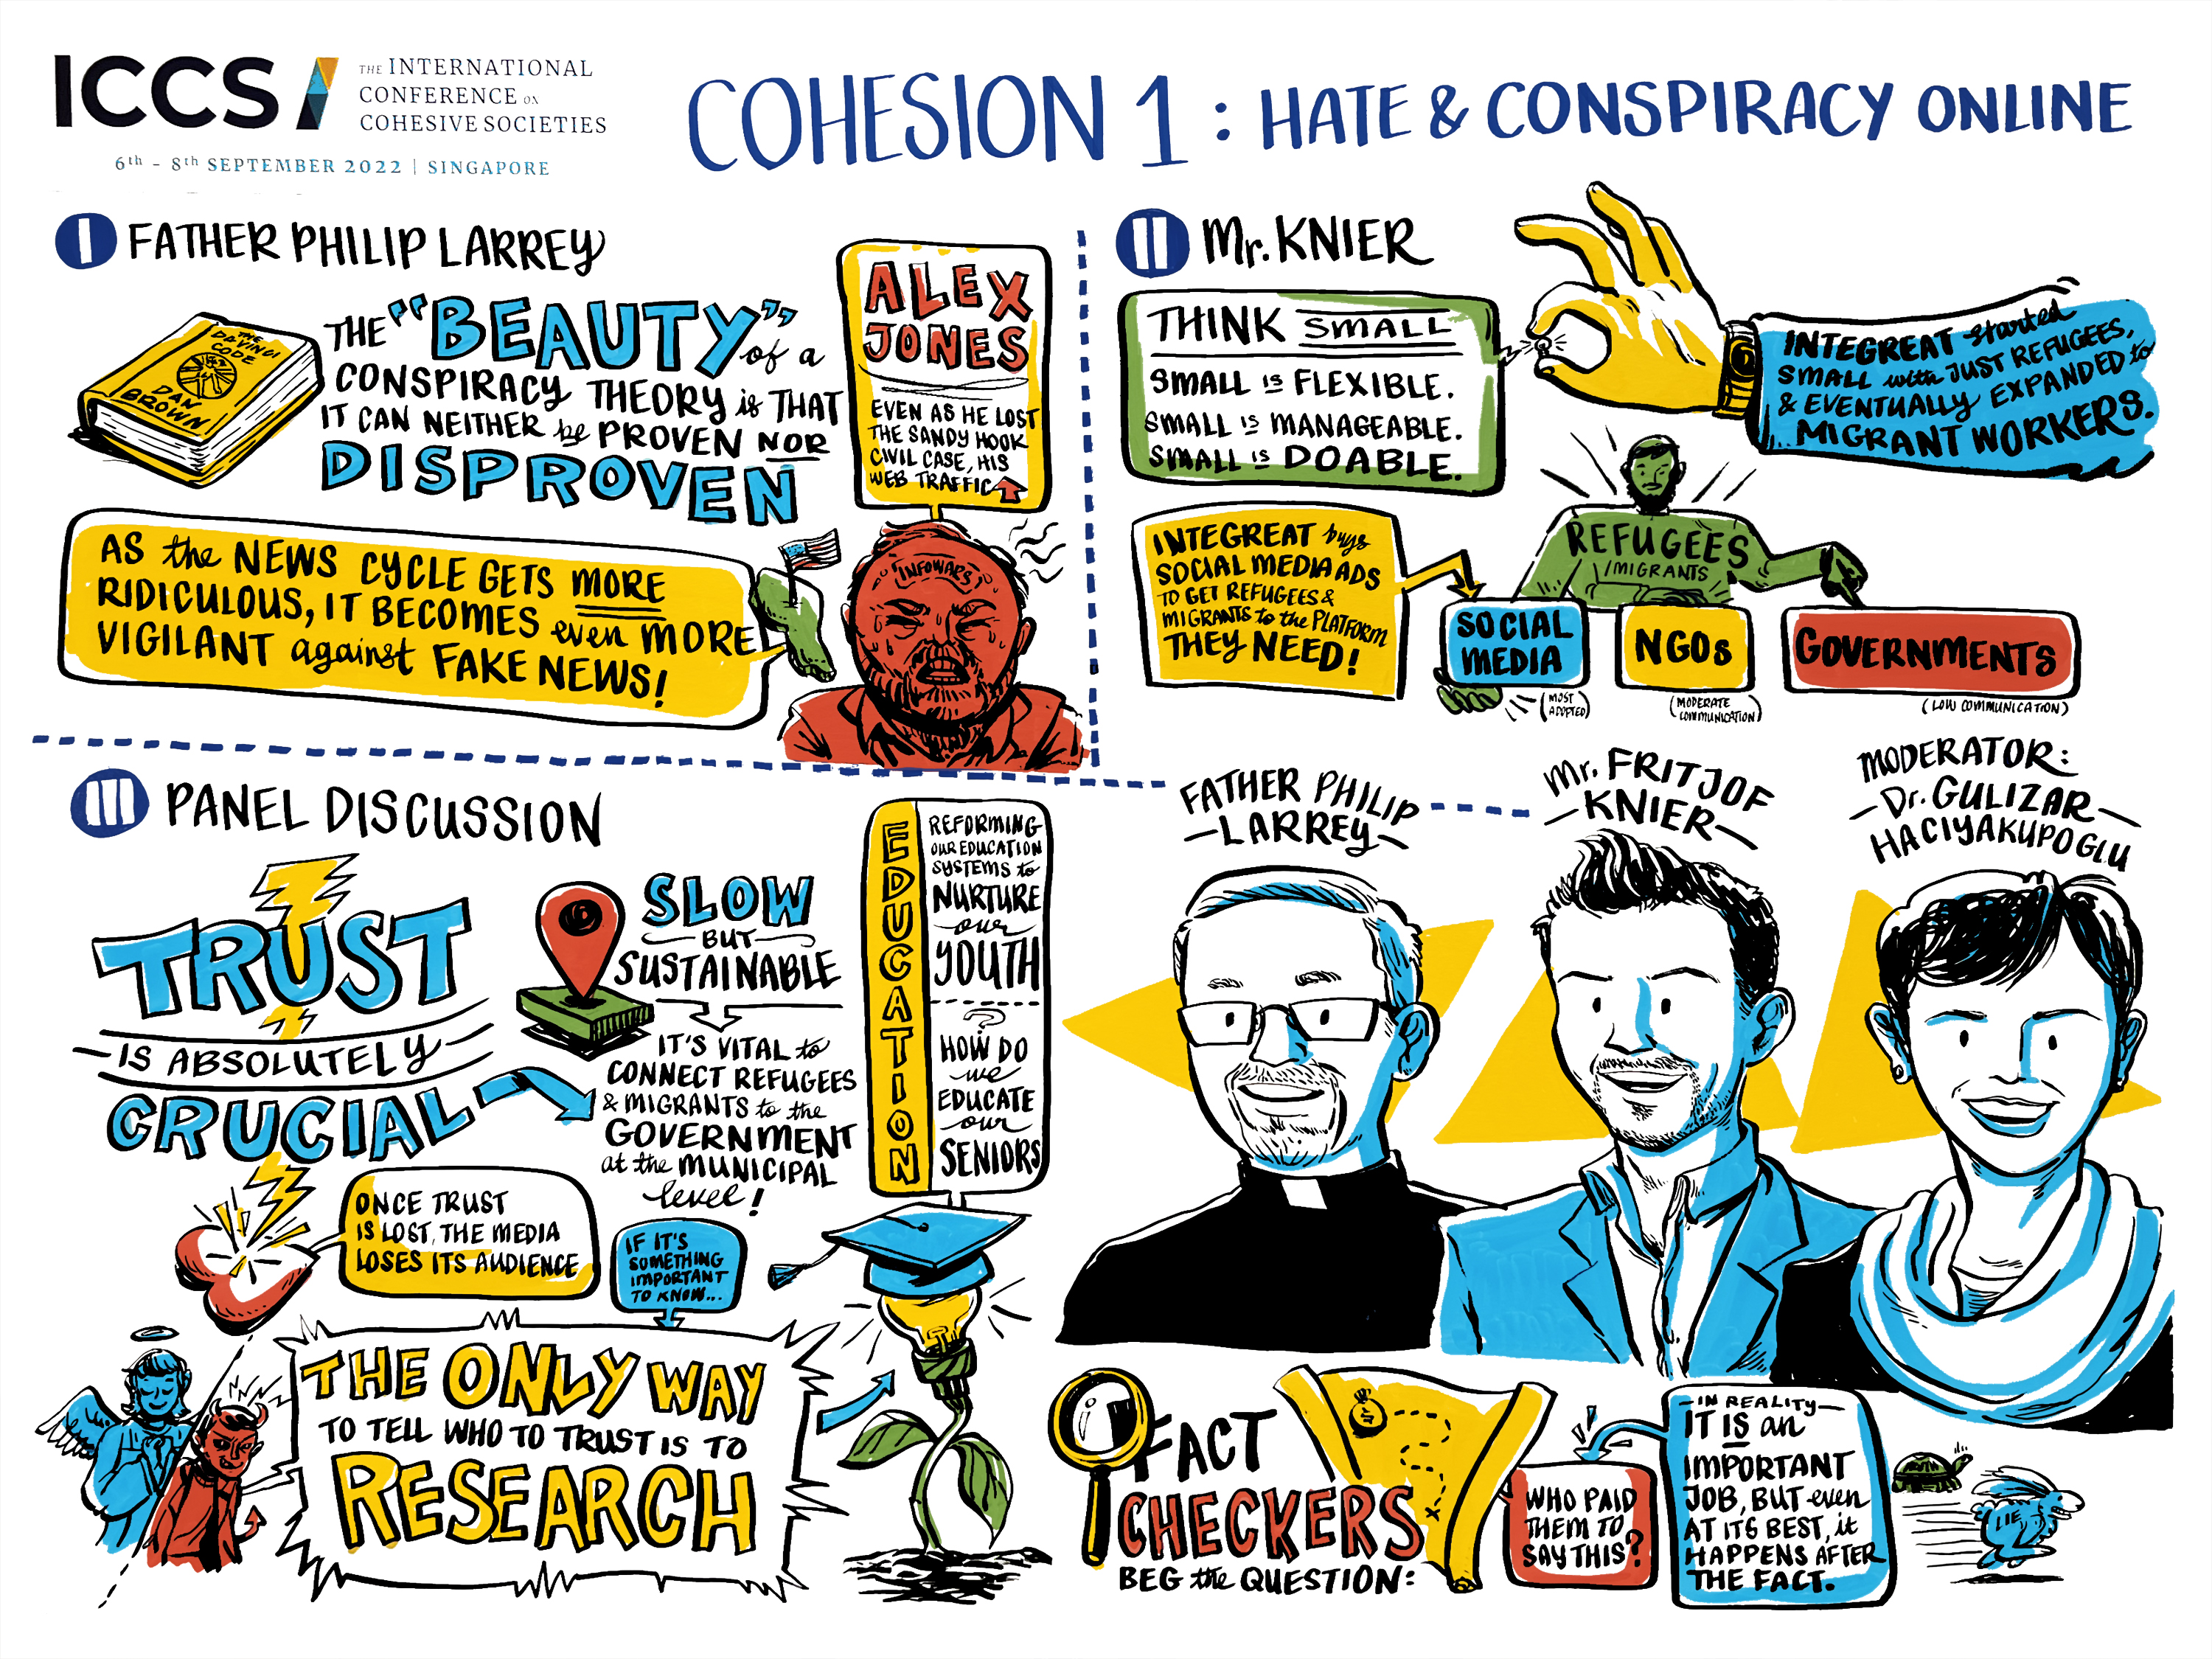 ICCS
THE INTERNATIONAL
CONFERENCE ON
COHESIVE SOCIETIES
6th - 8th SEPTEMBER 2022 | SINGAPORE
COHESION 1 : HATE & CONSPIRACY ONLINE
I FATHER PHILIP LARREY
THE
DAVINCI
CODE
DAN
BROWN
THE "BEAUTY" of a
CONSPIRACY THEORY is THAT
IT CAN NEITHER be PROVEN NOR
DISPROVEN
ALEX
JONES
EVEN AS HE LOST
THE SANDY HOOK
CIVIL CASE, HIS
WEB TRAFFIC
AS the NEWS CYCLE GETS MORE
RIDICULOUS, IT BECOMES even MORE
VIGILANT against FAKE NEWS!
INFOWARS
II Mr. KNIER
THINK SMALL
SMALL IS FLEXIBLE.
SMALL IS MANAGEABLE.
SMALL IS DOABLE.
INTEGREAT started
SMALL with JUST REFUGEES,
& EVENTUALLY EXPANDED to
... MIGRANT WORKERS.
INTEGREAT buys
SOCIAL MEDIA ADS
TO GET REFUGEES &
MIGRANTS to the PLATFORM
THEY NEED!
REFUGEES
/MIGRANTS
SOCIAL
MEDIA
(MOST
ADOPTED)
NGOs
(MODERATE
COMMUNICATION)
GOVERNMENTS
(LOW COMMUNICATION)
III PANEL DISCUSSION
TRUST
IS ABSOLUTELY
CRUCIAL
SLOW
BUT
SUSTAINABLE
IT'S VITAL to
CONNECT REFUGEES
& MIGRANTS to the
GOVERNMENT
at the MUNICIPAL
level!
ONCE TRUST
IS LOST, THE MEDIA
LOSES ITS AUDIENCE
IF IT'S
SOMETHING
IMPORTANT
TO KNOW...
THE ONLY WAY
TO TELL WHO TO TRUST IS TO
RESEARCH
EDUCATION
REFORMING
OUR EDUCATION
SYSTEMS to
NURTURE
our
YOUTH
?
HOW DO
we
EDUCATE
our
SENIORS
FATHER PHILIP
LARREY
Mr. FRITJOF
KNIER
MODERATOR:
Dr. GULIZAR
HACIYAKUPOGLU
FACT
CHECKERS
BEG the QUESTION:
WHO PAID
THEM TO
SAY THIS?
IN REALITY
IT IS an
IMPORTANT
JOB, BUT even
AT ITS BEST, it
HAPPENS AFTER
THE FACT.
LIE